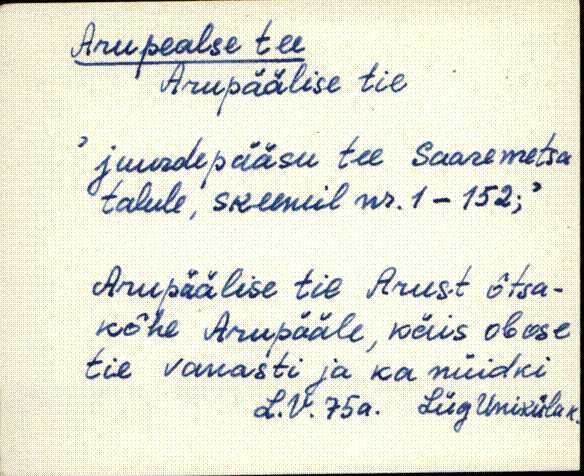 Arupealse tee
Arupäälise tie
'juurdepääsu tee Saaremetsa
talule, skeemil nr. 1 - 152;'
Arupäälise tie Arust õtsa-
kõhe Arupääle, käis obose
tie vanasti ja ka nüidki
L.V. 75a. Lüg Uniküla k.